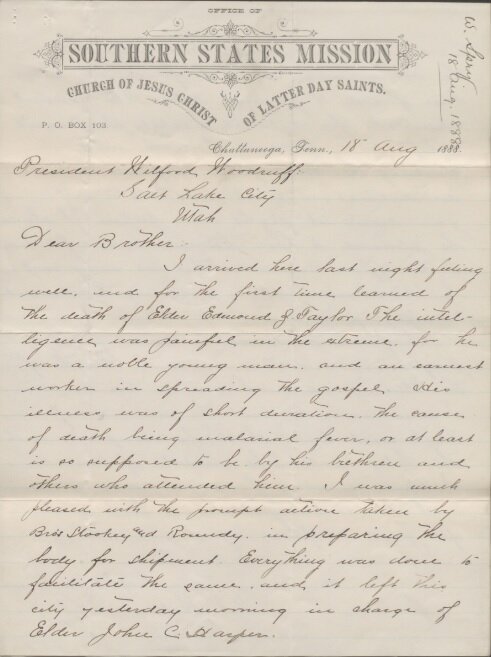 OFFICE OF
SOUTHERN STATES MISSION
CHURCH OF JESUS CHRIST OF LATTER DAY SAINTS.
W. Spry
18 Aug. 1888
P. O. BOX 103.
Chattanooga, Tenn., 18 Aug 1888.
President Wilford Woodruff:
Salt Lake City
Utah
Dear Brother:
I arrived here last night feeling
well, and for the first time learned of
the death of Elder Edmond Z Taylor The intel-
ligence was painful in the extreme, for he
was a noble young man, and an earnest
worker in spreading the gospel. His
illness was of short duration, the cause
of death being malarial fever, or at least
is so supposed to be by his brethren and
others who attended him. I was much
pleased with the prompt action taken by
Bros Stookey and Roundy, in preparing the
body for shipment. Everything was done to
facilitate the same, and it left this
city yesterday morning in charge of
Elder John C. Harper.